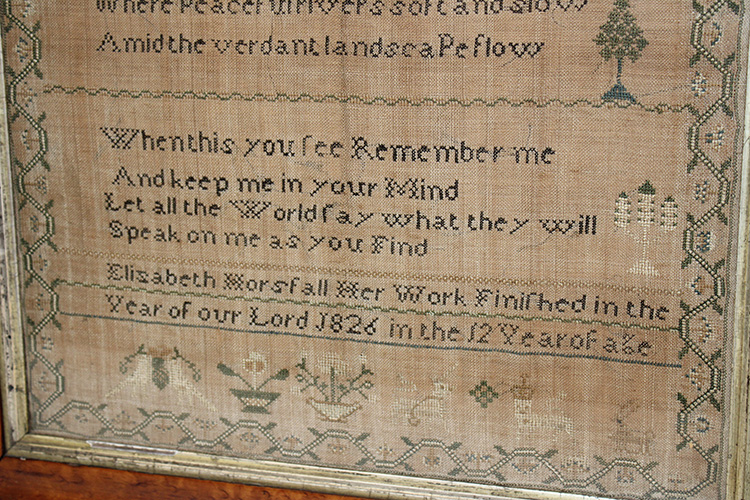 Where Peaceful rivers soft and slow
Amid the verdant landscaPe flow
When this you ſee Remember me
And keep me in your Mind
Let all the World ſay what they will
Speak on me as you Find
Elizabeth Horsfall Her Work Finiſhed in the
Year of our Lord 1826 in the 12 Year of age